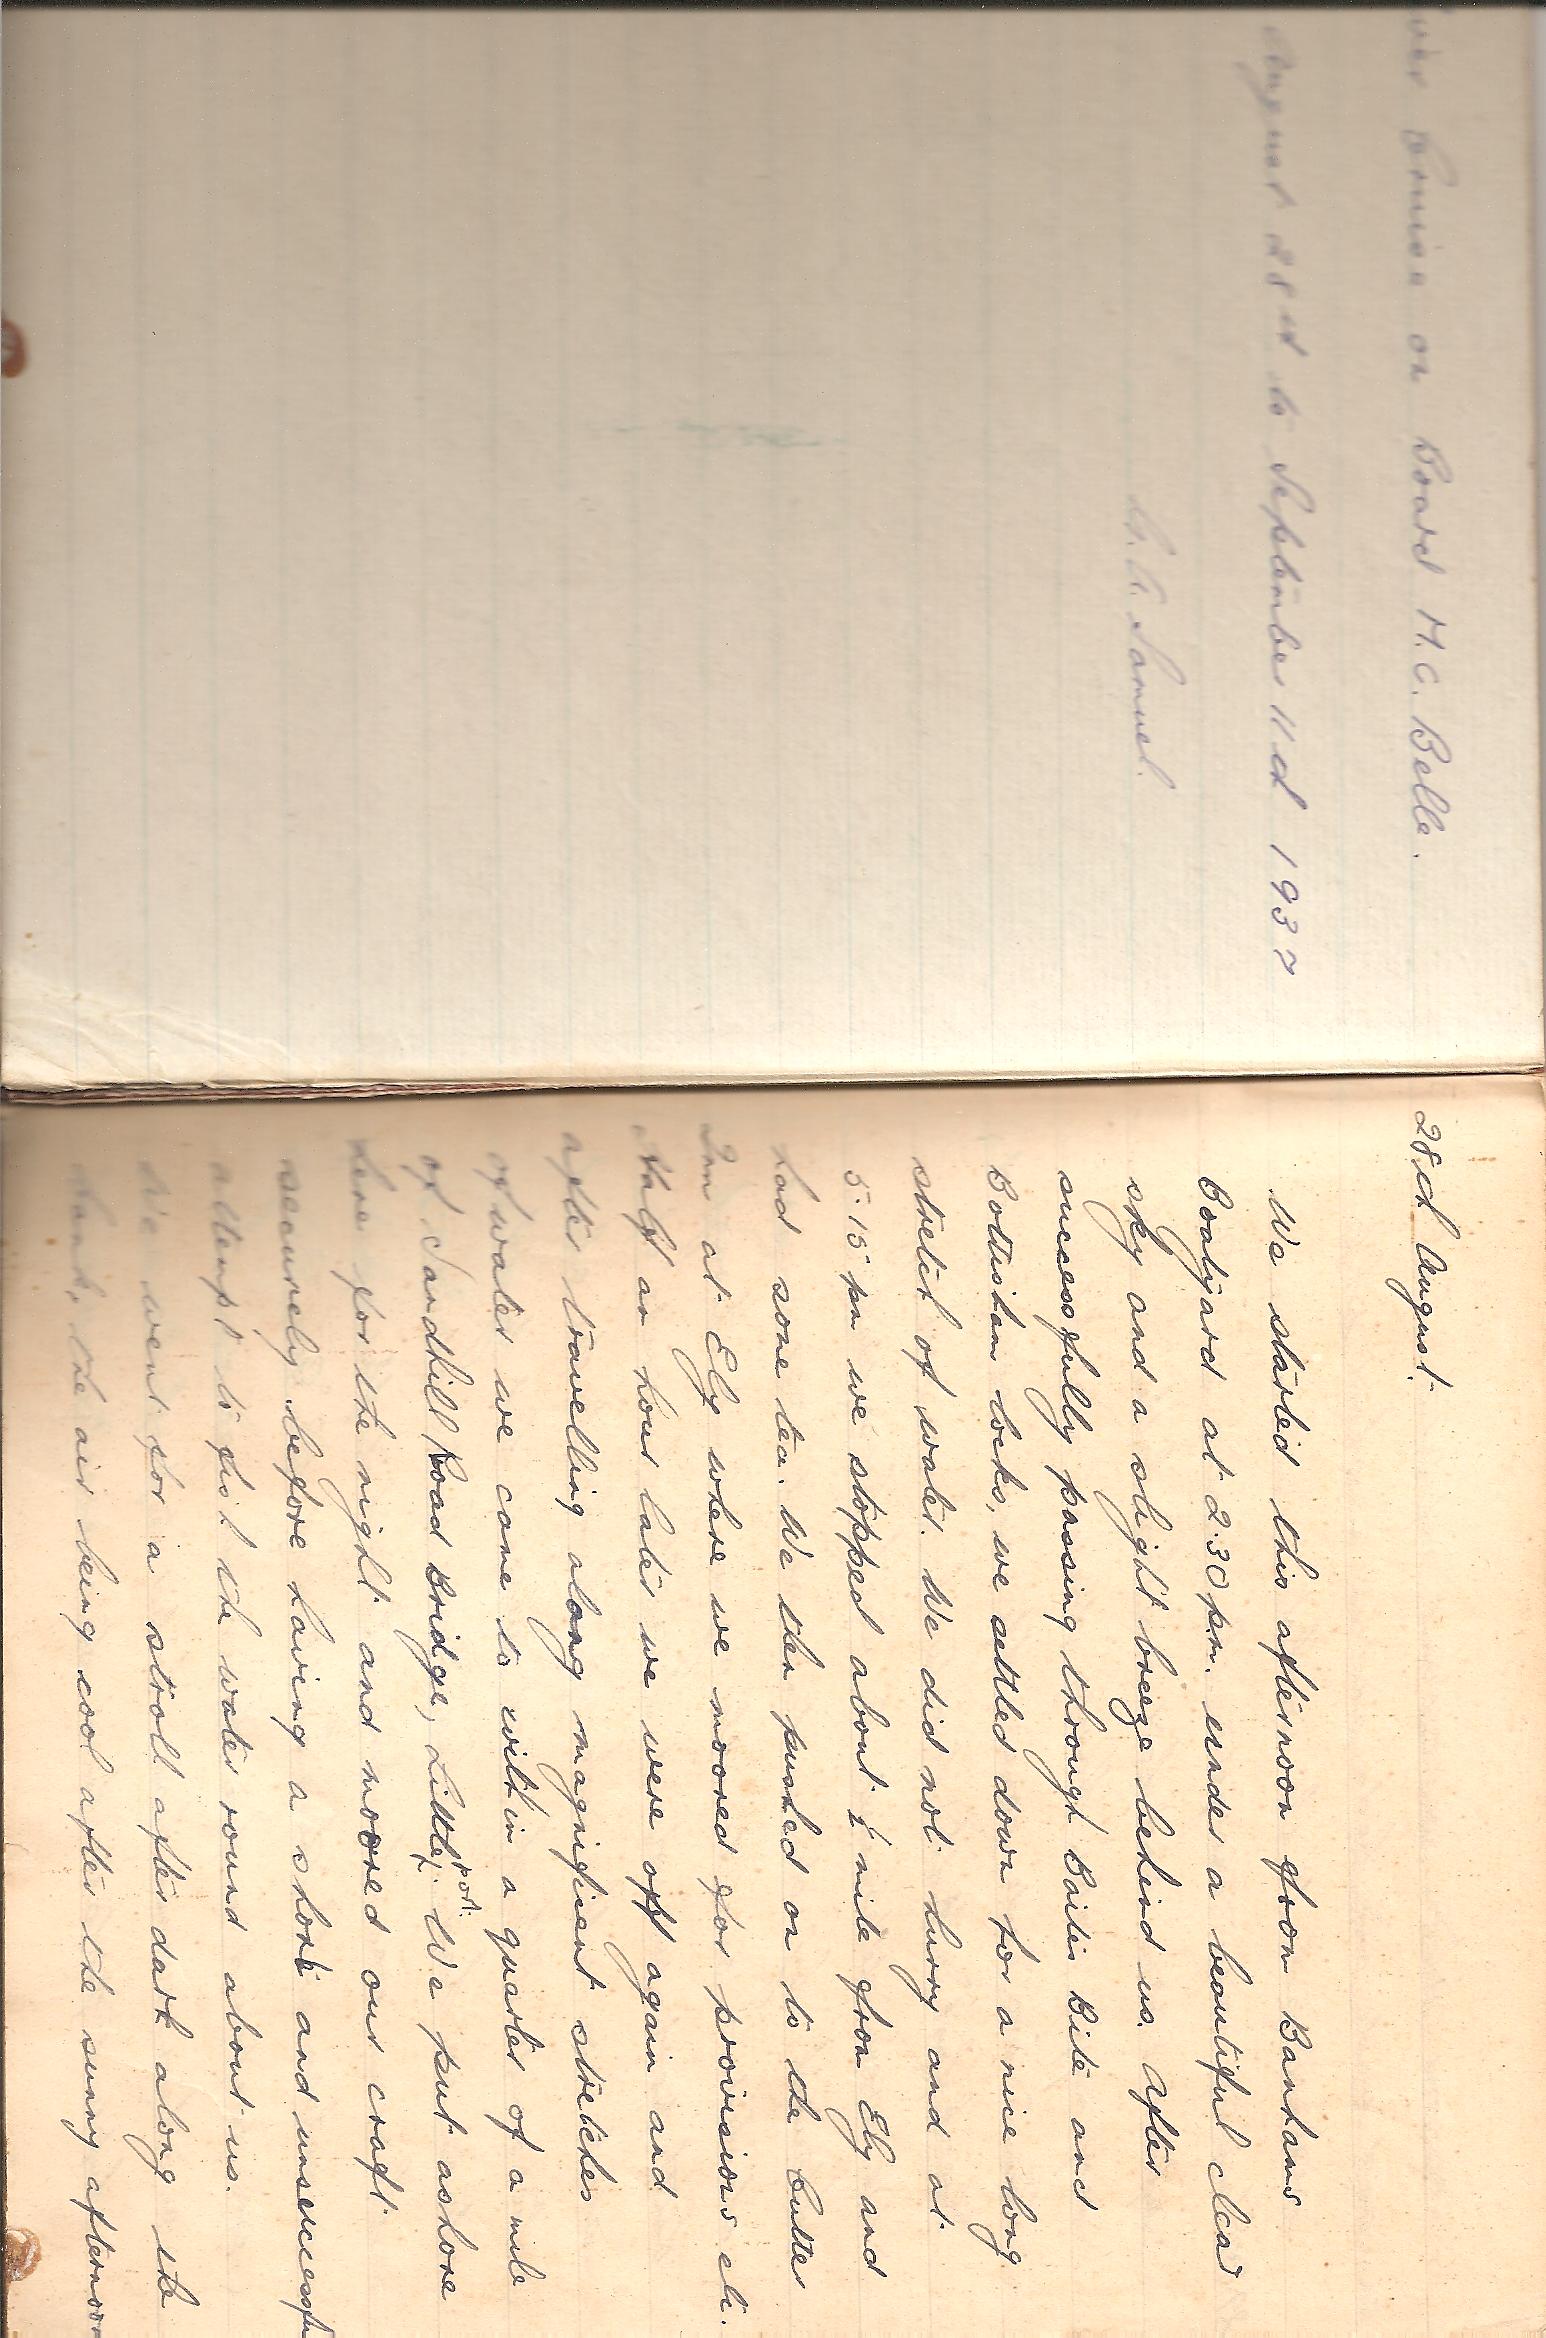 River Cruise on Board M.C. Belle.
August 28th to September 11th 1937
Samuel.
28th August.
We started this afternoon from Banhams
Boatyard at 2.30 p.m. under a beautiful clear
sky and a slight breeze behind us. After
successfully passing through Baites Bite and
Bottisham locks, we settled down for a nice long
stretch of water. We did not hurry and at
5.15 pm we stopped about ½ mile from Ely and
had some tea. We then pushed on to the Cutter
Inn at Ely where we moored for provisions etc.
Half an hour later we were off again and
after travelling along magnificent stretches
of water we came to within a quarter of a mile
of Sandhill Road Bridge, Littleport. We put ashore
here for the night and moored our craft
securely before having a short and unsuccessfu
attempt to fish the water round about us.
We went for a stroll after dark along the
bank, the air being cool after the sunny afternoon